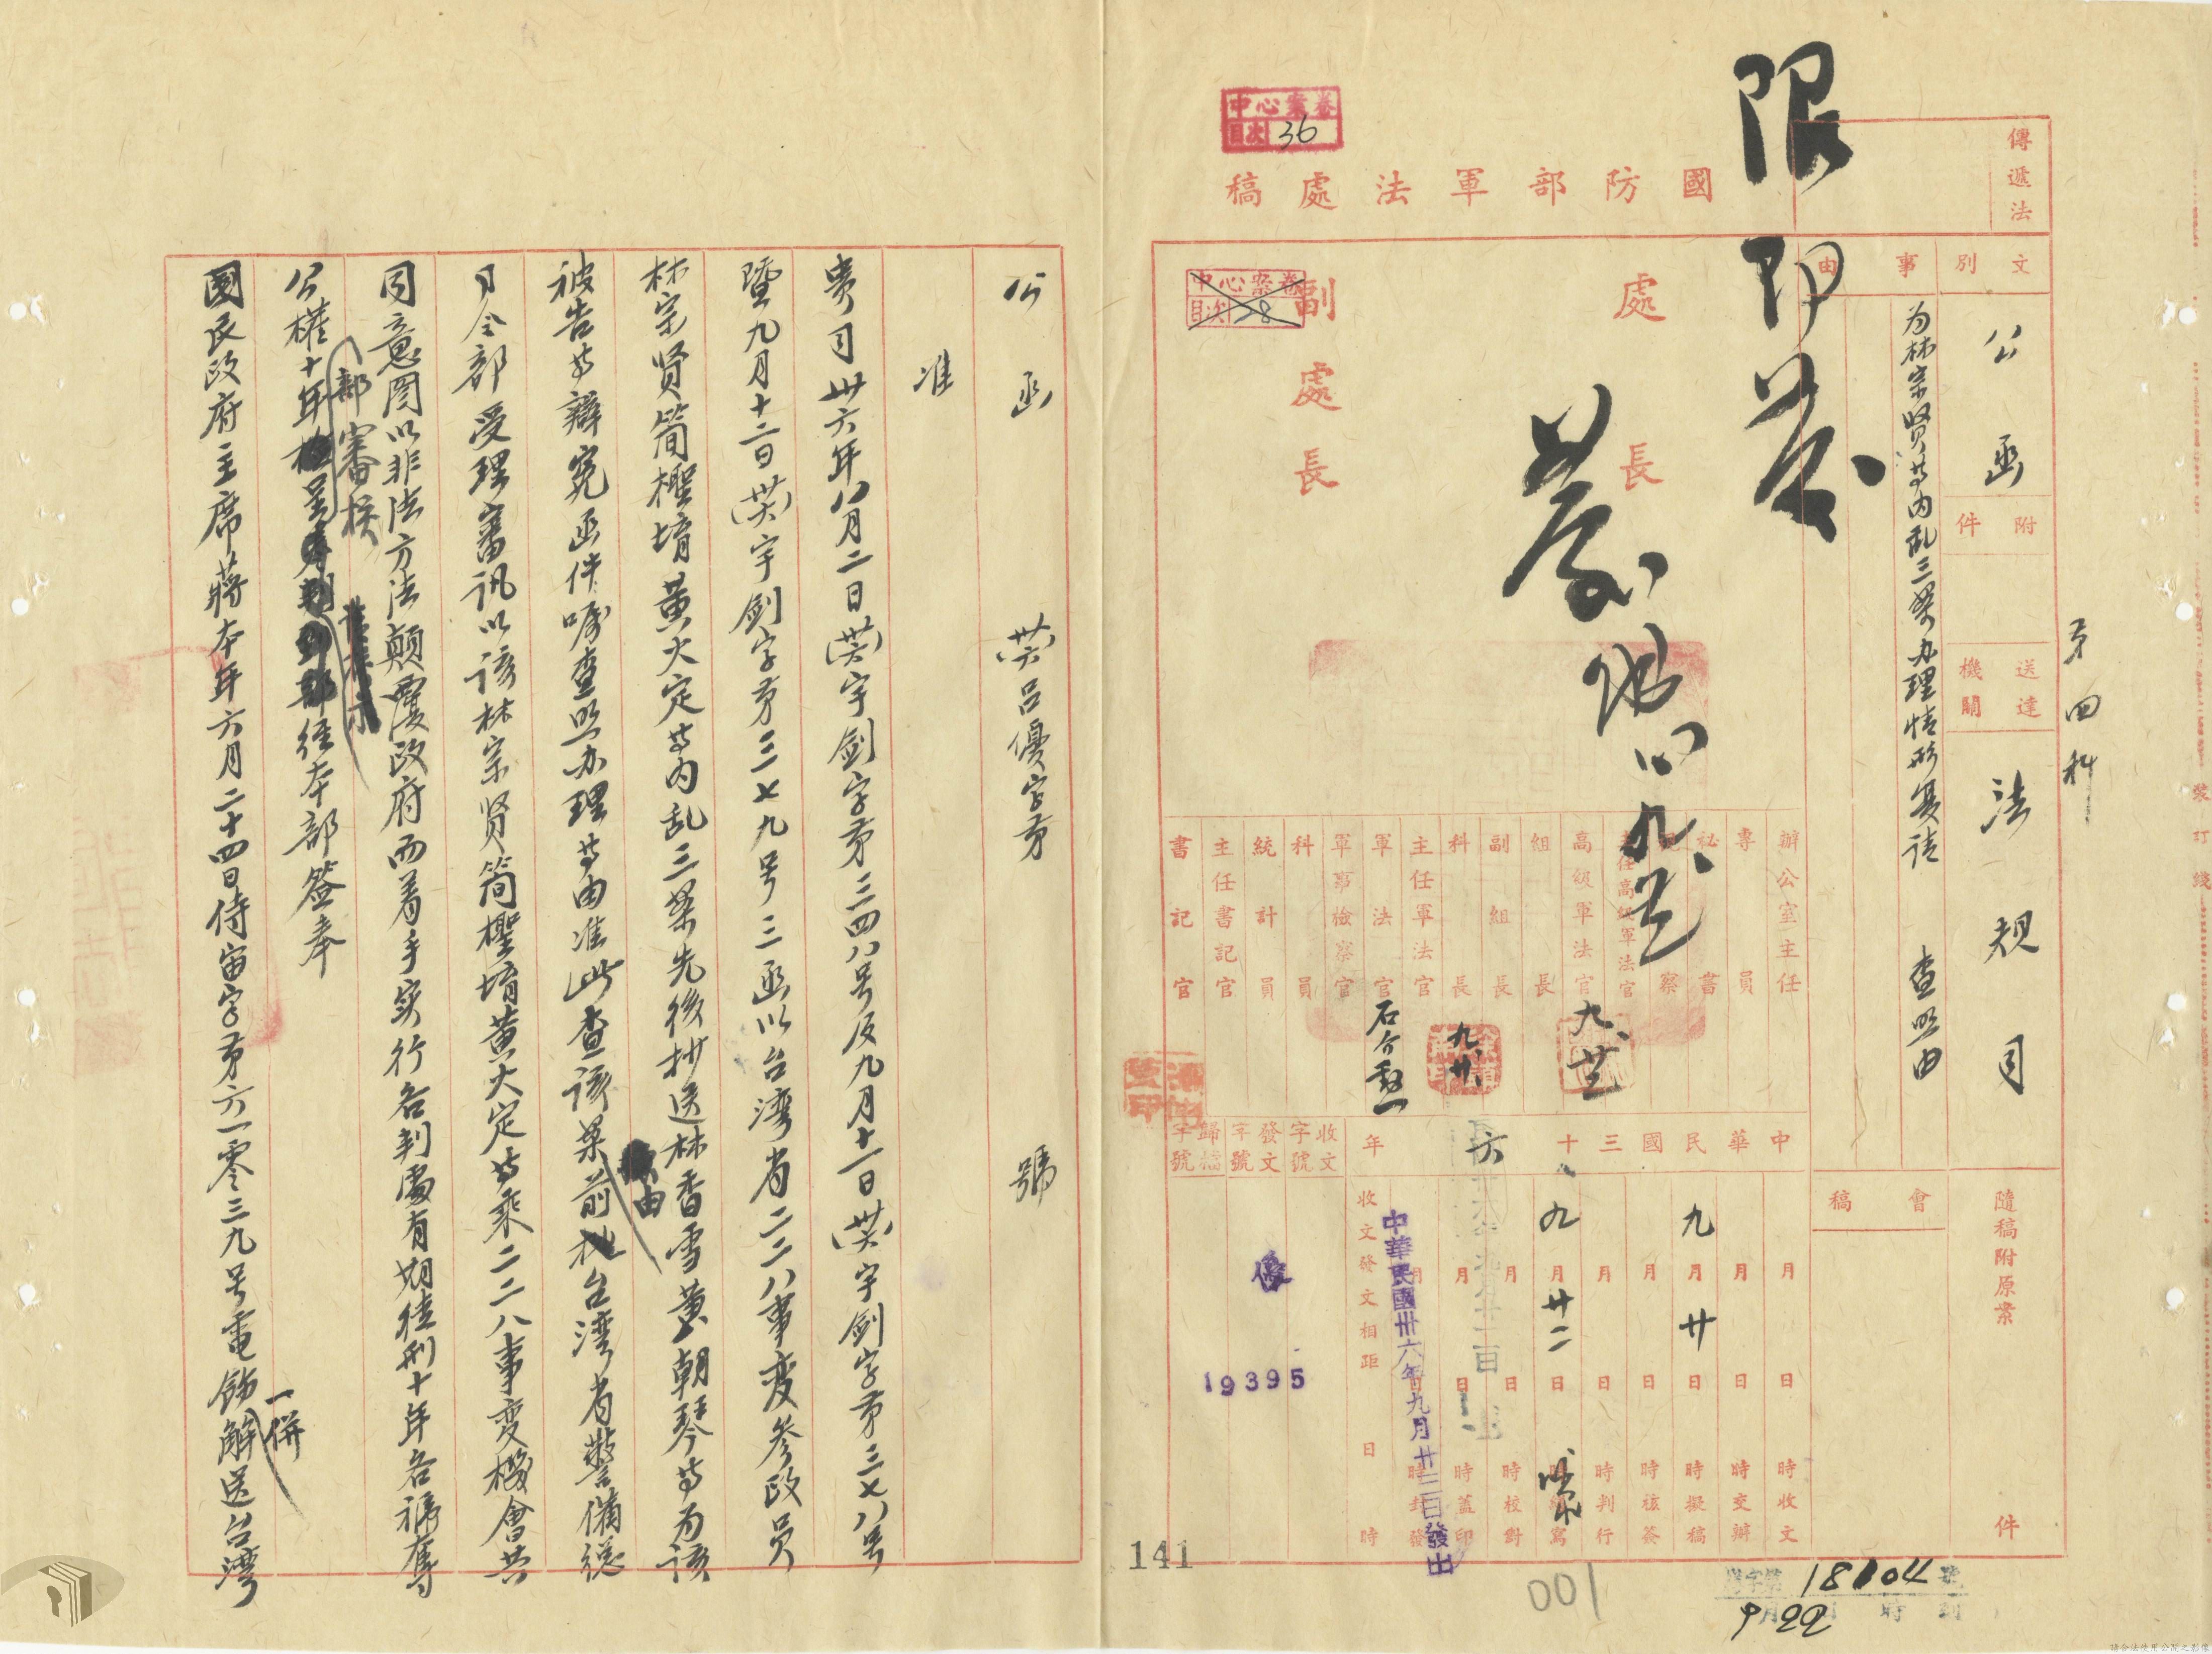 限即發
中心案卷
目次 36
國防部軍法處稿
傳遞法
文別
公函
附件
送達機關
法規司
第四科
事由
为林宗贤等内乱三案办理情形复请
查照由
處長
副處長
中心案卷
目次 28
辦公室主任
專員
秘書
高級軍法官
組長
副組長
科長
主任軍法官
軍法官
軍事檢察官
科員
統計員
主任書記官
書記官
九、廿、
中華民國三十六年
月日時收文
月日時交辦
九月廿日時擬稿
月日時核簽
月日時判行
九月廿二日繕寫
月日時校對
月日時蓋印
月日時封發
收文發文相距 日 時
中華民國卅六年九月廿二日發出
收文字號
發文字號
歸檔字號
優
19395
會稿
隨稿附原案 件
裝訂綫
141
001
18104
9月22
公函 (卅六)吕優字第 號
准
貴司卅六年八月二日(卅六)宇劍字第三四八号及九月十一日(卅六)宇劍字第三七八号
暨九月十二日(卅六)宇劍字第三七九号三函以台湾省二二八事变参政员
林宗贤简檉堉黄火定等内乱三案先後抄送林香雪黄朝琴等为该
被告等辯寃函件嘱查照办理等由准此查该案前由台湾省警備総
司令部受理審讯以该林宗贤简檉堉黄火定等乘二二八事变機會共
同意图以非法方法顛覆政府而着手实行各判處有期徒刑十年各褫奪
公權十年呈部審核
经本部签奉
國民政府主席蔣本年六月二十四日侍宙字第六一零三九号電飭一併解送台湾